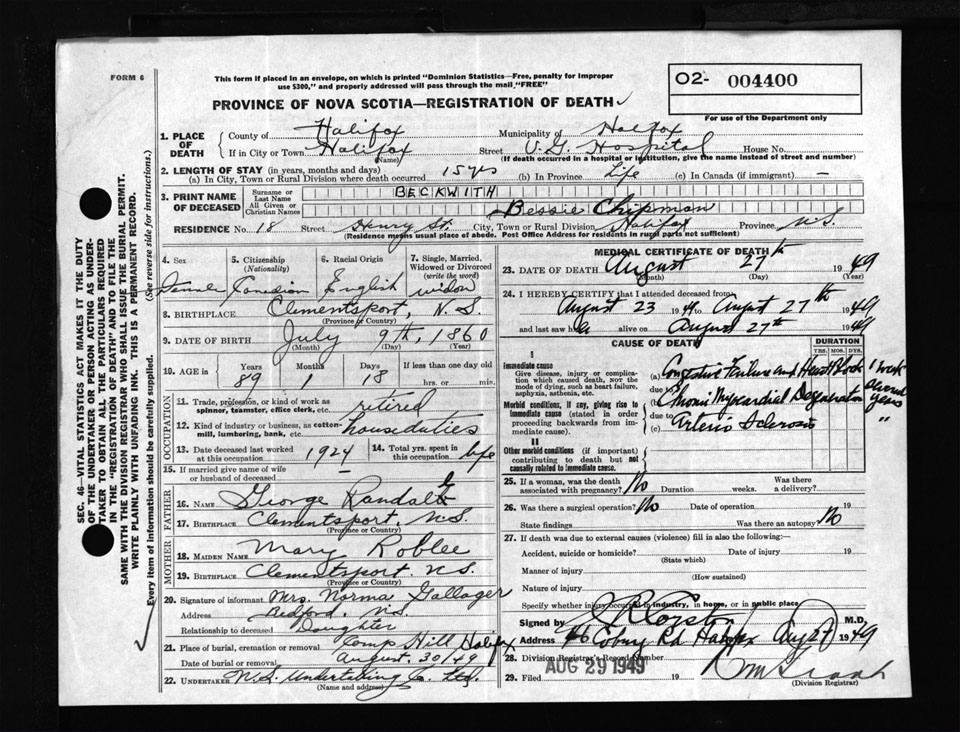 FORM 6
This form if placed in an envelope, on which is printed "Dominion Statistics—Free, penalty for improper
use $300," and properly addressed will pass through the mail "FREE"
O2- 004400
For use of the Department only
PROVINCE OF NOVA SCOTIA—REGISTRATION OF DEATH
1. PLACE OF DEATH
County of Halifax Municipality of Halifax
If in City or Town Halifax Street V.G. Hospital House No.
(Name) (If death occurred in a hospital or institution, give the name instead of street and number)
2. LENGTH OF STAY (in years, months and days)
(a) In City, Town or Rural Division where death occurred 15 yrs (b) In Province Life (c) In Canada (if immigrant) —
3. PRINT NAME OF DECEASED
Surname or Last Name BECKWITH
All Given or Christian Names Bessie Chipman
RESIDENCE No. 18 Street Henry St. City, Town or Rural Division Halifax Province N.S.
(Residence means usual place of abode. Post Office Address for residents in rural parts not sufficient)
4. Sex 5. Citizenship (Nationality) 6. Racial Origin 7. Single, Married, Widowed or Divorced (write the word)
Female Canadian English widow
8. BIRTHPLACE Clementsport, N.S.
(Province or Country)
9. DATE OF BIRTH July 9th, 1860
(Month) (Day) (Year)
10. AGE in Years Months Days If less than one day old
89 1 18 hrs. or min.
OCCUPATION
11. Trade, profession, or kind of work as spinner, teamster, office clerk, etc. retired
12. Kind of industry or business, as cotton-mill, lumbering, bank, etc. house duties
13. Date deceased last worked at this occupation 1924 14. Total yrs. spent in this occupation life
15. If married give name of wife or husband of deceased —
FATHER
16. NAME George Randall
17. BIRTHPLACE Clementsport, N.S.
(Province or Country)
MOTHER
18. MAIDEN NAME Mary Roblee
19. BIRTHPLACE Clementsport. N.S.
(Province or Country)
20. Signature of informant Mrs. Norma Gallager
Address Bedford, N.S.
Relationship to deceased Daughter
21. Place of burial, cremation or removal Camp Hill Halifax
Date of burial or removal August. 30/49
22. UNDERTAKER N.S. Undertaking Co. Ltd.
(Name and address)
MEDICAL CERTIFICATE OF DEATH
23. DATE OF DEATH August 27th 1949
(Month) (Day) (Year)
24. I HEREBY CERTIFY that I attended deceased from
August 23 1949 to August 27th 1949
and last saw her alive on August 27th 1949
CAUSE OF DEATH DURATION
YRS. MOS. DYS.
I
Immediate cause
Give disease, injury or complication which caused death, NOT the mode of dying, such as heart failure, asphyxia, asthenia, etc.
(a) Congestive Failure and Heart Block 1 week
due to
Morbid conditions, if any, giving rise to immediate cause (stated in order proceeding backwards from immediate cause).
(b) Chronic Myocardial Degeneration several years
due to
(c) Arterio Sclerosis "
II
Other morbid conditions (if important) contributing to death but not causally related to immediate cause.
25. If a woman, was the death associated with pregnancy? No Duration weeks. Was there a delivery?
26. Was there a surgical operation? No Date of operation 19
State findings Was there an autopsy? No
27. If death was due to external causes (violence) fill in also the following:—
Accident, suicide or homicide? Date of injury 19
(State which)
Manner of injury
(How sustained)
Nature of injury
Specify whether injury occurred in industry, in home, or in public place
Signed by M.D,
Address Halifax Aug 27 1949
28. Division Registrar's Record Number
AUG 29 1949
29. Filed 19
(Division Registrar)
SEC. 46—VITAL STATISTICS ACT MAKES IT THE DUTY
OF THE UNDERTAKER OR PERSON ACTING AS UNDER-
TAKER TO OBTAIN ALL THE PARTICULARS REQUIRED
IN THE "REGISTRATION OF DEATH" AND TO FILE THE
SAME WITH THE DIVISION REGISTRAR WHO SHALL ISSUE THE BURIAL PERMIT.
WRITE PLAINLY WITH UNFADING INK. THIS IS A PERMANENT RECORD.
Every item of information should be carefully supplied. (See reverse side for instructions.)